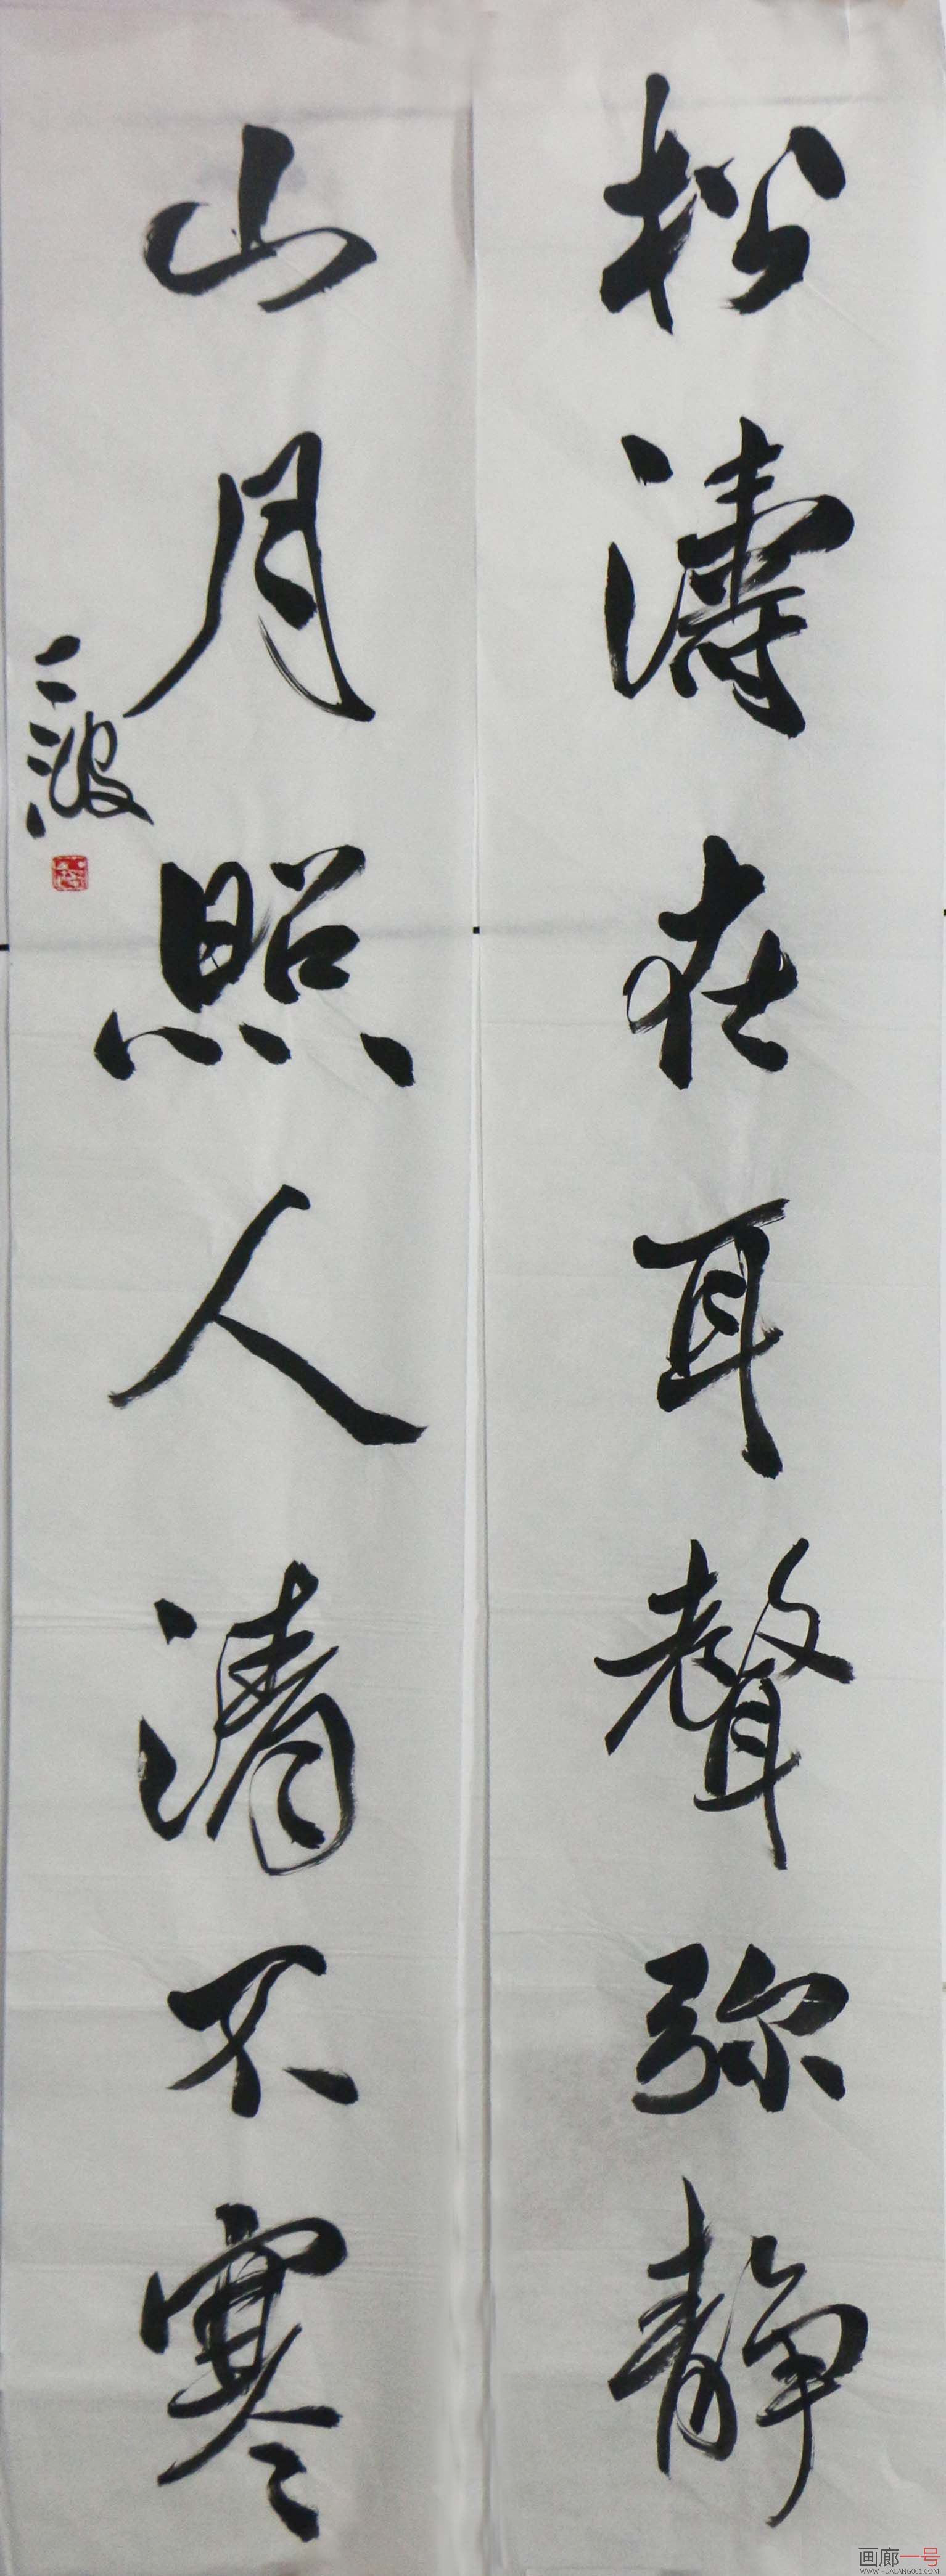 松濤在耳聲弥静
山月照人清不寒
三波
画廊一号
WWW.HUALANG001.COM